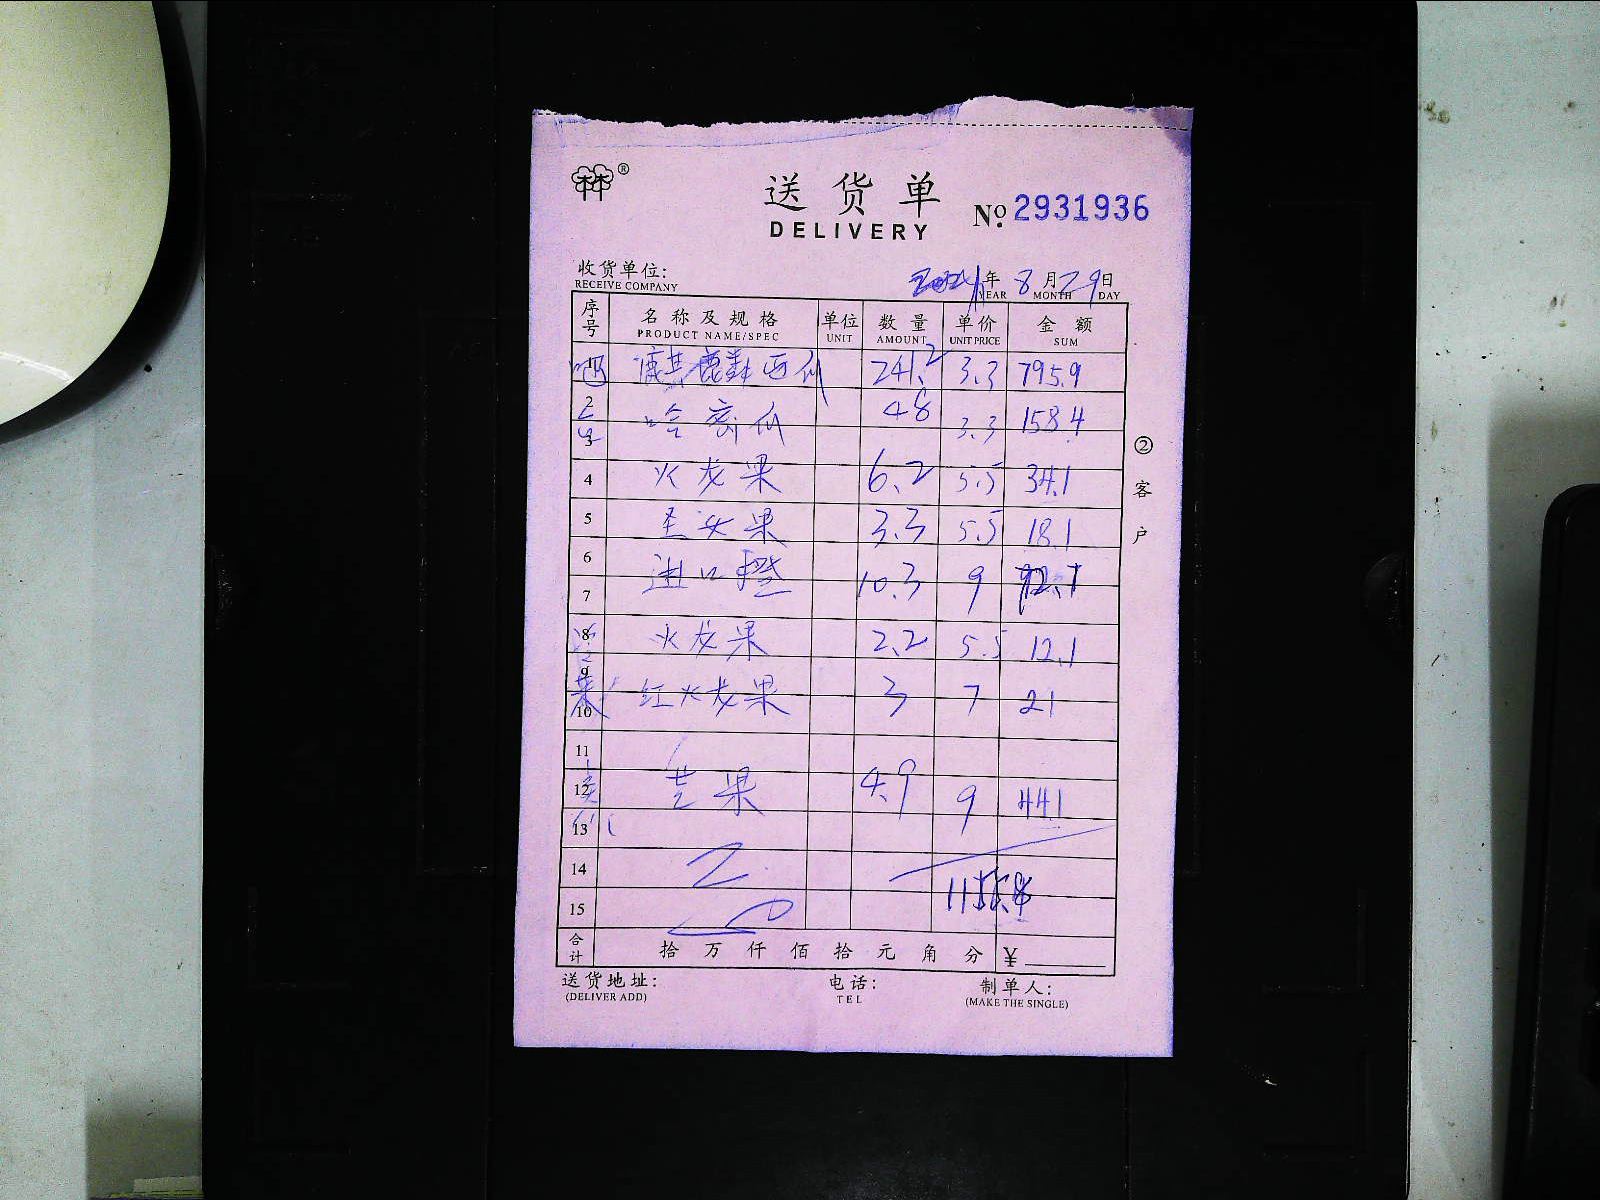 林®
送货单
DELIVERY
No. 2931936
收货单位:
RECEIVE COMPANY
年 8月29日
YEAR MONTH DAY
序号 名称及规格 单位 数量 单价 金额
PRODUCT NAME/SPEC UNIT AMOUNT UNIT PRICE SUM
1 麒麟西瓜 241.2 3.3 795.9
2 哈密瓜 48 3.3 158.4
3
4 火龙果 6.2 5.5 34.1
5 圣女果 3.3 5.5 18.1
6 进口橙 10.3 9 92.7
7
8 火龙果 2.2 5.5 12.1
9
10 红火龙果 3 7 21
11
12 芒果 4.9 9 44.1
13
14
15
合计 拾 万 仟 佰 拾 元 角 分 ¥
送货地址: 电话: 制单人:
(DELIVER ADD) TEL (MAKE THE SINGLE)
②客户